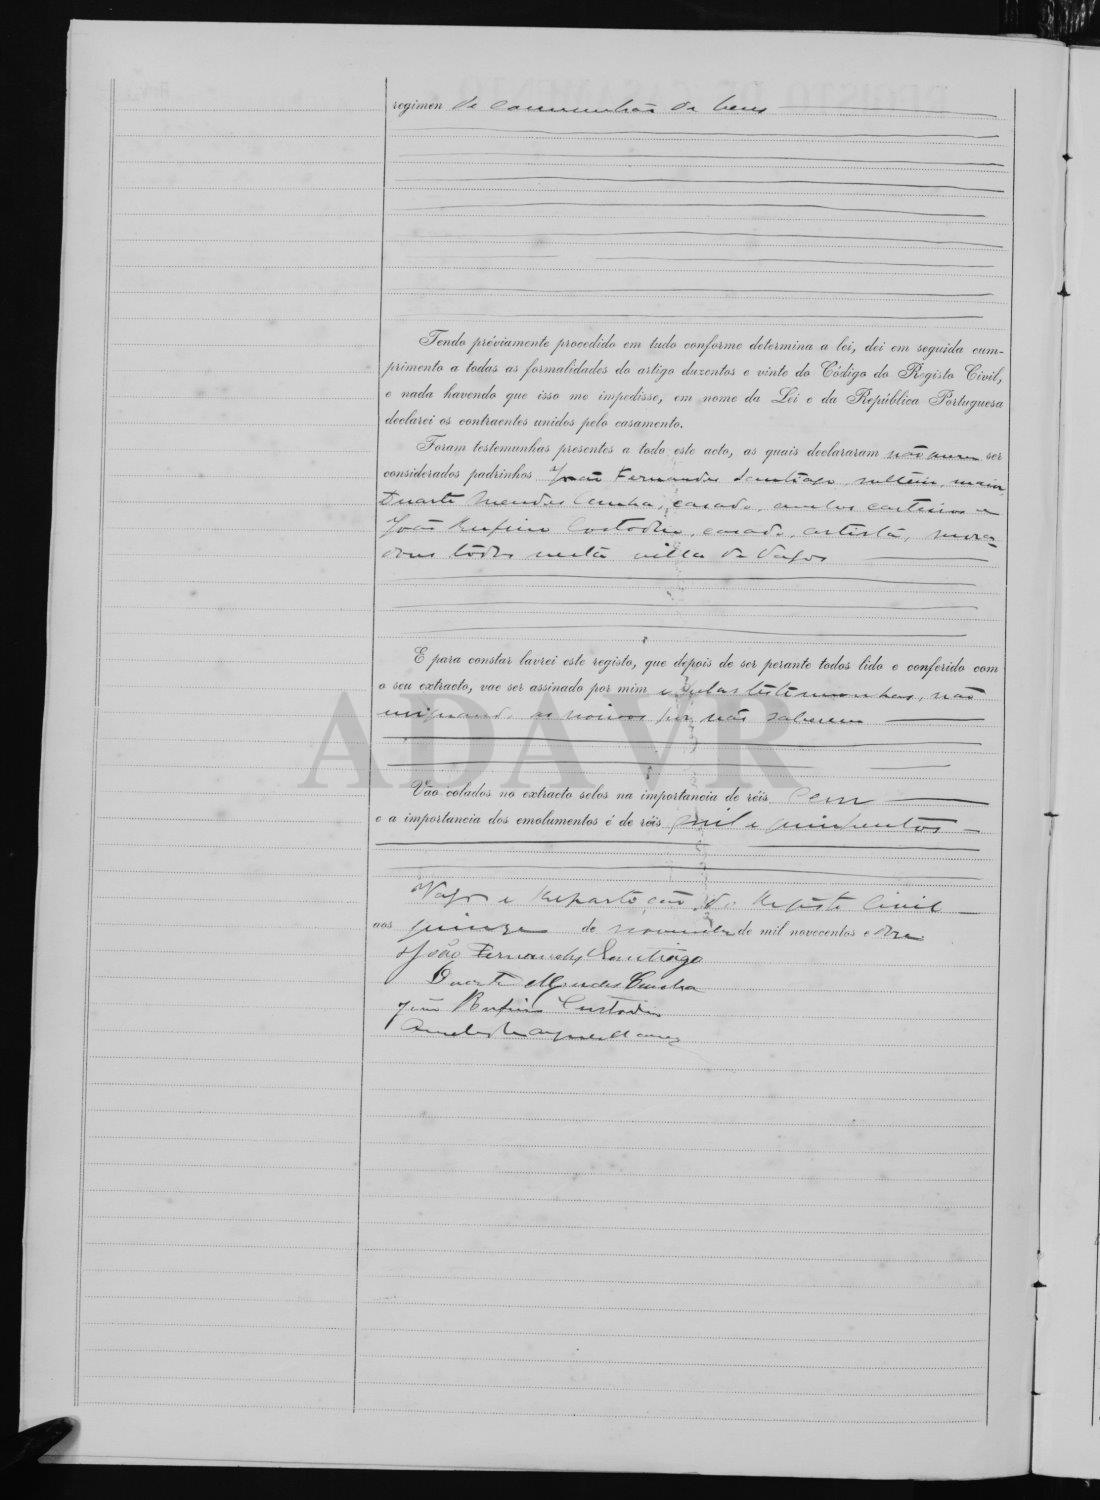 regimen de communhão de bens
Tendo préviamente procedido em tudo conforme determina a lei, dei em seguida cum-
primento a todas as formalidades do artigo duzentos e vinte do Código do Registo Civil,
e nada havendo que isso me impedisse, em nome da Lei e da República Portuguesa
declarei os contraentes unidos pelo casamento.
Foram testemunhas presentes a todo este acto, as quais declararam não ser
considerados padrinhos João Fernandes Santiago, solteiro, maior,
Duarte Mendes Cunha, casado, ambos carteiros e
João Rufino Custodio, casado, artista, mora-
dores todos nesta villa de Vagos
E para constar lavrei este registo, que depois de ser perante todos lido e conferido com
o seu extracto, vae ser assinado por mim e pelas testemunhas, não
assignando os noivos por não saberem
ADAVR
Vão colados no extracto selos na importancia de réis cem
e a importancia dos emolumentos é de réis mil e quinhentos
Vagos e Repartição do Registo Civil
aos quinze de novembro de mil novecentos e onze
João Fernandes Santiago
Duarte Mendes Cunha
João Rufino Custodio